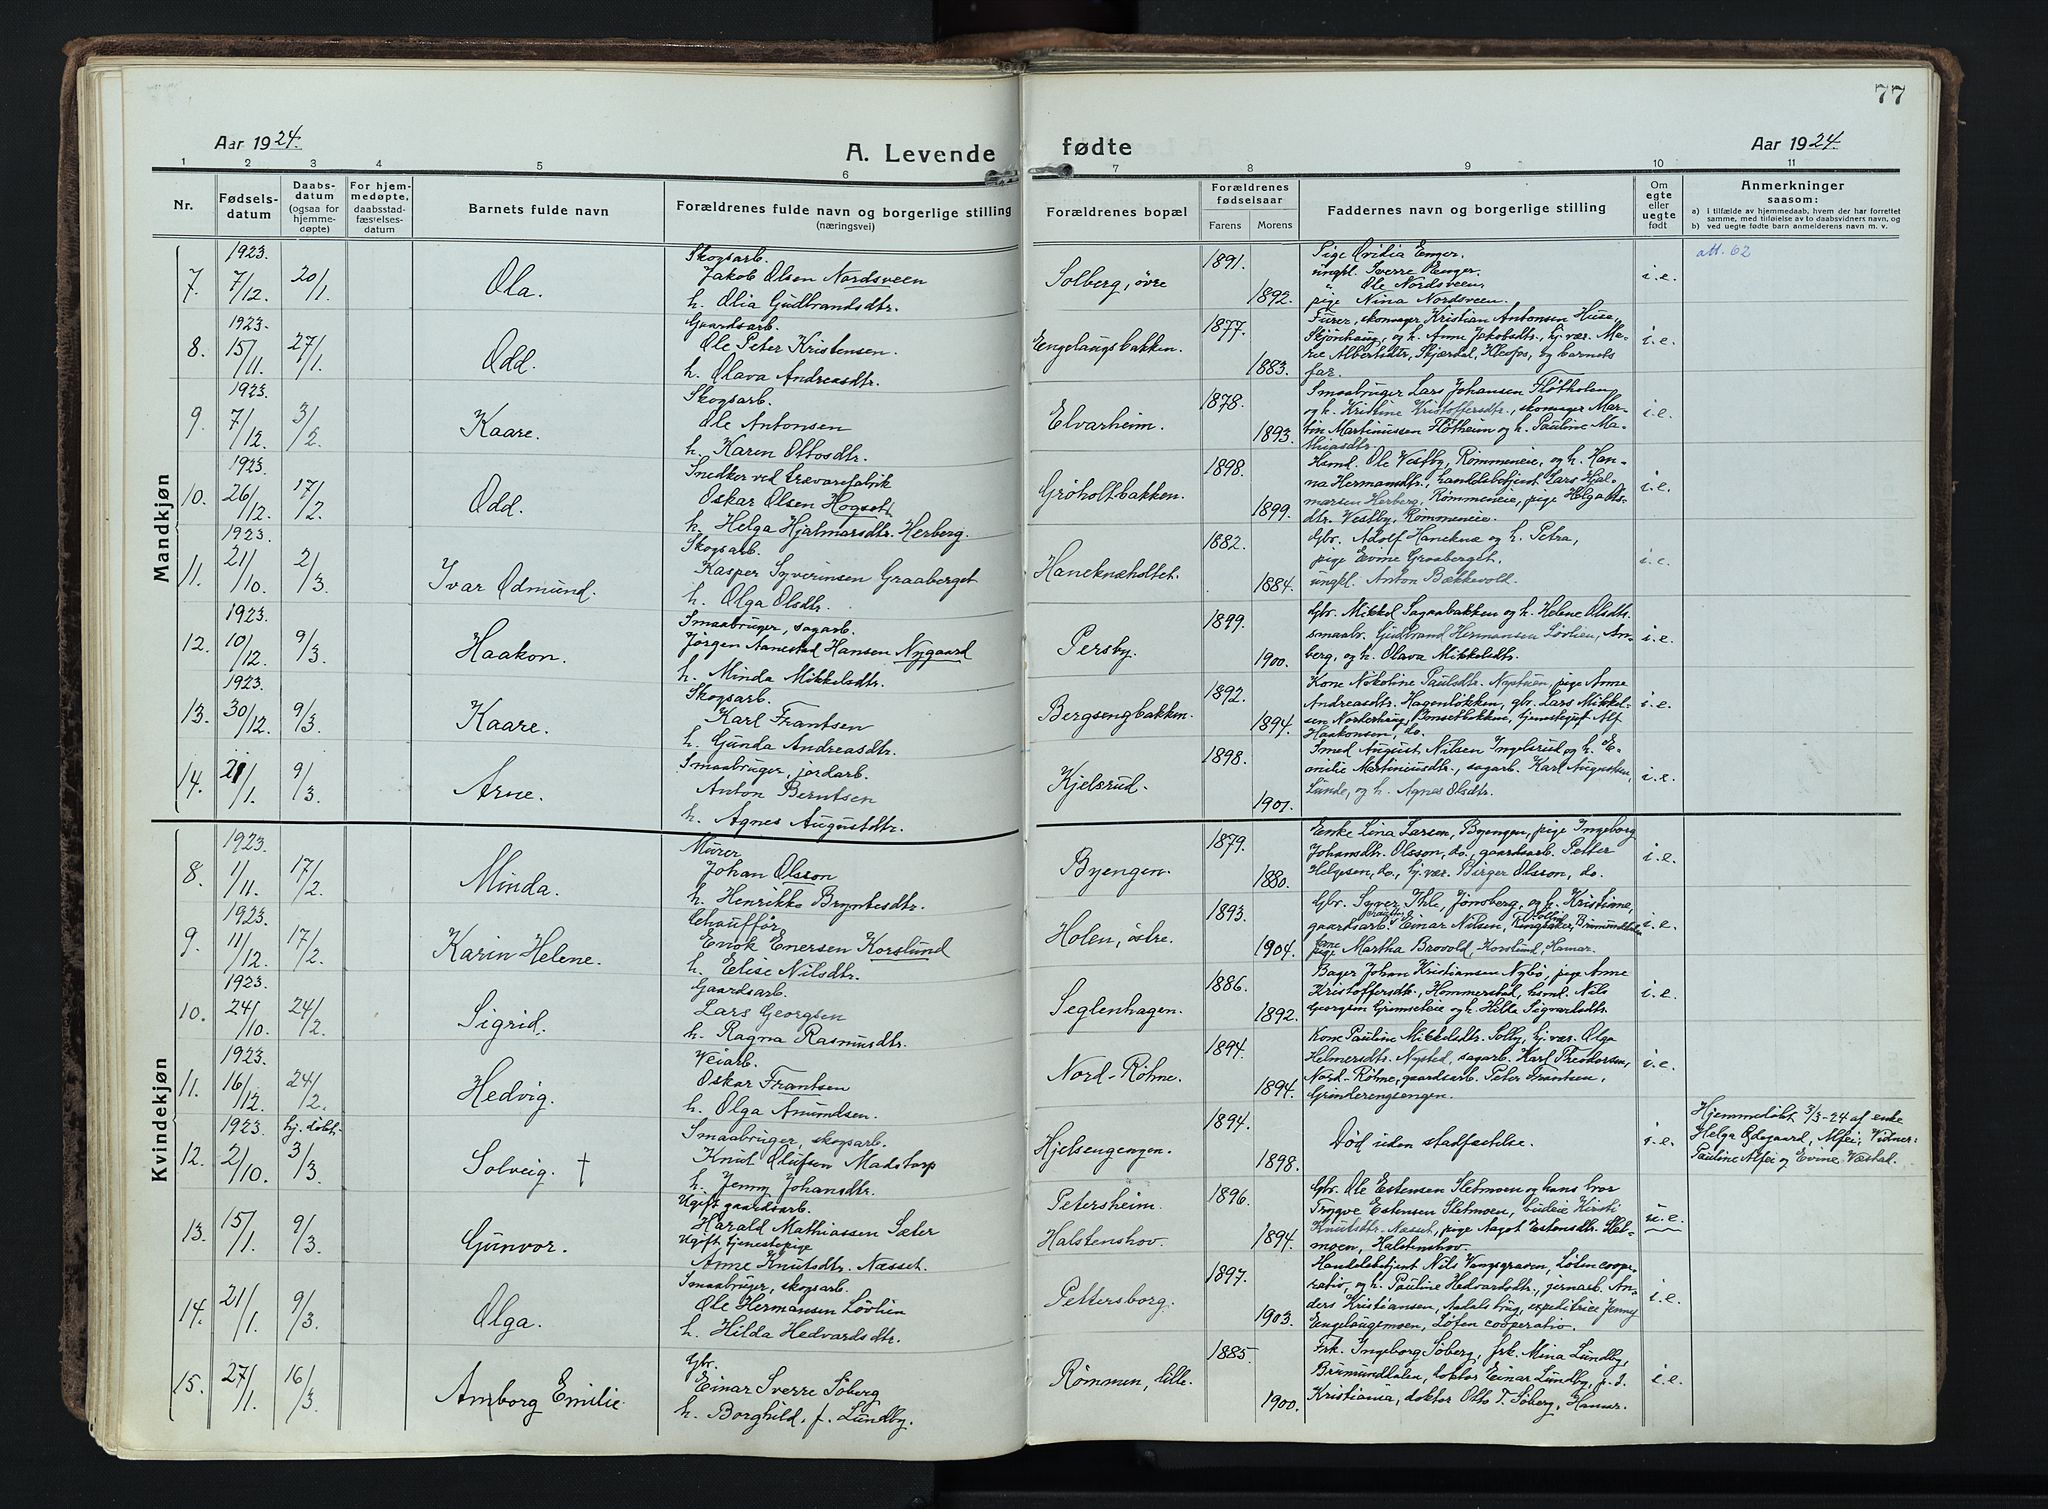 77
Aar 1924.
A. Levende fødte
Aar 1924.
1 2 3 4 5 6 7 8 9 10 11
Nr.
Fødselsdatum
Daabsdatum (ogsaa for hjemmedøpte)
For hjemmedøpte, daabsstadfæstelsesdatum
Barnets fulde navn
Forældrenes fulde navn og borgerlige stilling (næringsvei)
Forældrenes bopæl
Forældrenes fødselsaar
Farens Morens
Faddernes navn og borgerlige stilling
Om egte eller uegte født
Anmerkninger saasom:
a) i tilfælde av hjemmedaab, hvem der har forrettet samme, med tilføielse av to daabsvidners navn, og
b) ved uegte fødte barn anmelderens navn m. v.
Mandkjøn
7. 1923. 7/12. 20/1
Ola.
Skogsarb.
Jakob Olsen Nordsveen
h. Olia Gudbrandsdtr.
Solberg, øvre
1891. 1892.
Pige Ovidia Enger.
ungkl. Sverre Enger.
" Ole Nordsveen.
pige Nina Nordsveen.
i.e.
att. 62
8. 1923. 15/11. 27/1.
Odd.
Gaardsarb.
Ole Peter Kristensen.
h. Olava Andreasdtr.
Engelaugsbakken.
1877. 1883.
Furer, skomager Kristian Antonsen Huse,
Skjønhaug, og h. Anne Jakobsdtr., hj. vær. Ma-
rie Albertsdtr., Skjærdal, Kleofos, og barnets
far.
i.e.
9. 1923. 7/12. 3/2
Kaare.
Skogsarb.
Ole Antonsen
h. Karen Ottosdtr.
Elvarheim.
1878. 1893.
Smaabruger Lars Johansen Fløtholen
og h. Kristine Kristoffersdtr., skomager Mar-
tin Martinussen Fløtheim og h. Pauline Ma-
thiasdtr.
i.e.
10. 1923. 26/12. 17/2
Odd.
Snedker ved trævarefabrik
Oskar Olsen Hogset
h. Helga Hjalmarsdtr. Herberg.
Grøholtbakken.
1898. 1899.
Hsmd. Ole Vestby, Rømmeneie, og h. Han-
na Hermansdtr., handelsbetjent Lars Hjal-
marsen Herberg, Rømmeneie, pige Helga Ols-
dtr. Vestby, Rømmeneie.
i.e.
11. 1923. 21/10. 2/3.
Ivar Odmund.
Skogsarb.
Kasper Syverinsen Graaberget
h. Olga Olsdtr.
Haneknæholtet.
1882. 1884.
Gbr. Adolf Haneknæ og h. Petra,
pige Evine Graaberget,
ungkl. Anton Bækkevold.
i.e.
12. 1923. 10/12. 9/3
Haakon.
Smaabruger, sagarb.
Jørgen Aanestad Hansen Nygaard
h. Minda Mikkelsdtr.
Persby.
1899. 1900.
Gbr. Mikkel Sagaabakken og h. Helene Olsdtr.
smaabr. Gudbrand Hermansen Løvlien, Am-
berg, og h. Olava Mikkelsdtr.
i.e.
13. 1923. 30/12. 9/3.
Kaare.
Skogsarb.
Karl Frantsen
h. Gunda Andreasdtr.
Bergsengbakken.
1892. 1894.
Kone Nikoline Paulsdtr. Nystuen, pige Anne
Andreasdtr. Hagenløkken, gbr. Lars Mikkel-
sen Norderhaug, Bonsetbakken, tjenestegut Alf
Haakonsen, do.
i.e.
14. 21/1. 9/3.
Arne.
Smaabruger, jordarb.
Anton Berntsen
h. Agnes Augustdtr.
Kjelsrud.
1898. 1901.
Smed August Nilsen Ingelsrud og h. E-
milie Martiniusdtr., sagarb. Karl Augustsen,
Lunde, og h. Agnes Olsdtr.
i.e.
Kvindekjøn
8. 1923. 1/11. 17/2.
Minda.
Murer
Johan Olsson
h. Henrikke Bryntesdtr.
Byengen.
1879. 1880.
Enke Lina Larsen, Byengen, pige Ingeborg
Johansdtr. Olsson, do., gaardsarb. Petter
Helgesen, do., hj. vær. Birger Olsson, do.
i.e.
9. 1923. 11/12. 17/2.
Karin Helene.
Chauffør
Enok Enersen Korslund
h. Elise Nilsdtr.
Holen, østre.
1893. 1904.
Gbr. Syver Ihle, Jønsberg, og h. Kristiane,
gaardsarb. Einar Nilsen, Ringsaker, Brumunddalen
pige Martha Brovold, Korslund, Hamar.
i.e.
10. 1923. 24/10. 24/2.
Sigrid.
Gaardsarb.
Lars Georgsen
h. Ragna Rasmusdtr.
Seglenhagen.
1886. 1892.
Bager Johan Kristiansen Nybø, pige Anne
Kristoffersdtr., Hommerstad, hsmd. Nils
Georgsen Grimseteie og h. Hilda Sigvartsdtr.
i.e.
11. 1923. 16/12. 24/2.
Hedvig.
Veiarb.
Oskar Frantsen
h. Olga Amundsen.
Nord-Røhne.
1894. 1894.
Kone Pauline Mikkelsdtr. Solby, hj. vær. Olga
Helmersdtr. Nysted, sagarb. Karl Theodorsen,
Nord-Røhne, gaardsarb. Peter Frantsen,
Grinderengsengen.
i.e.
12. 1923. 2/10. hj. døbt. 3/3.
Solveig. †
Smaabruger, skogsarb.
Knut Olufsen Madstorp
h. Jenny Johansdtr.
Hjelsengengen.
1894. 1898.
Død uden stadfæstelse.
i.e.
Hjemmedøbt 3/3-24 af enke
Helga Ødegaard, Alfei; Vidner:
Pauline Alfei og Evine Væstad.
13. 15/1. 9/3.
Gunvor.
Ugift gaardsarb.
Harald Mathiassen Sæter
Ugift tjenestepige
Anne Knutsdtr. Næsset.
Petersheim.
Halstenshov.
1896. 1894.
Gbr. Ole Estensen Sletmoen og hans bror
Trygve Estensen Sletmoen, budeie Kirsti
Knutsdtr. Næsset, pige Aagot Estensdtr. Slet-
moen, Halstenshov.
u.e.
14. 21/1. 9/3.
Olga.
Smaabruger, skogsarb.
Ole Hermansen Løvlien
h. Hilda Hedvardsdtr.
Pettersborg.
1897. 1903.
Handelsbetjent Nils Vangsgraven, Løten coope-
rativ, og h. Pauline Hedvardsdtr., jernarb. An-
ders Kristiansen, Aadals brug, expeditrice Jenny
Engelaugsmoen, Løten cooperativ.
i.e.
15. 27/1. 16/3.
Amborg Emilie.
Gbr.
Einar Sverre Søberg
h. Borghild, f. Lundby.
Rømmen, lille.
1885. 1900.
Frk. Ingeborg Søberg, frk. Mina Lundby,
Brumunddalen, doktor Einar Lundby, p. t.
Kristiania, doktor Otto T. Søberg, Hamar.
i.e.